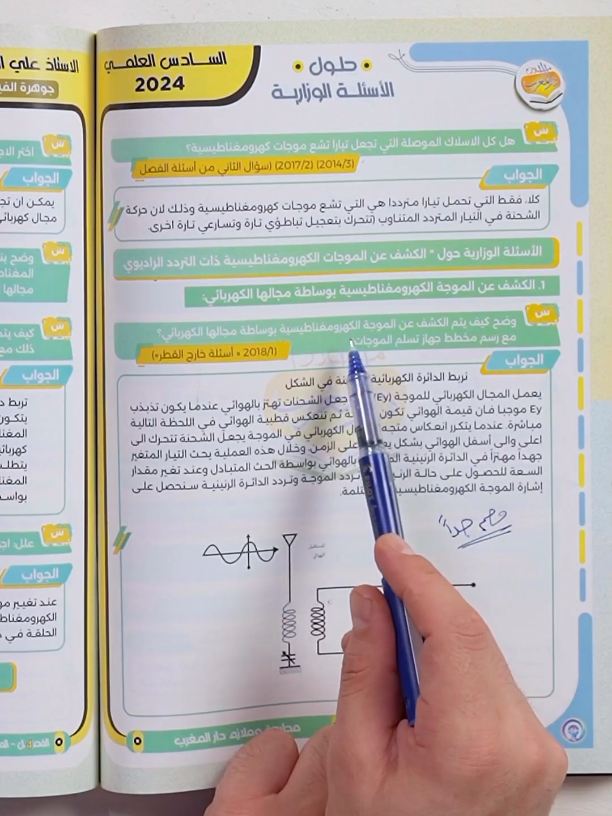 السادس العلمي
2024
حلول
الأسئلة الوزارية
س
هل كل الاسلاك الموصلة التي تجعل تيارا تشع موجات كهرومغناطيسية؟
(2014/3) (2017/2) (سؤال الثاني من أسئلة الفصل
الجواب
كلا. فقط التي تحمل تيارا مترددا هي التي تشع موجات كهرومغناطيسية وذلك لان حركة
الشحنة في التيار المتردد المتناوب (تتحرك بتعجيل تباطؤي تارة وتسارعي تارة اخرى.
الأسئلة الوزارية حول " الكشف عن الموجات الكهرومغناطيسية ذات التردد الراديوي
1. الكشف عن الموجة الكهرومغناطيسية بوساطة مجالها الكهربائي:
س
وضح كيف يتم الكشف عن الموجة الكهرومغناطيسية بوساطة مجالها الكهربائي؟
مع رسم مخطط جهاز تسلم الموجات
(2018/1 " أسئلة خارج القطر")
الجواب
نربط الدائرة الكهربائية في الشكل
يعمل المجال الكهربائي للموجة (Ey) جعل الشحنات تهتز بالهوائي عندما يكون تذبذب
Ey موجبا فان قيمة الهوائي تكون ثم تنعكس قطبية الهوائي في اللحظة التالية
مباشرة. عندما يتكرر انعكاس متجه الكهربائي في الموجة يجعل الشحنة تتحرك الى
اعلى والى أسفل الهوائي بشكل على الزمن. وخلال هذه العملية يحث التيار المتغير
جهداً مهتزاً في الدائرة الرنينية بالهوائي بواسطة الحث المتبادل وعند تغير مقدار
السعة للحصول على حالة تردد الموجة وتردد الدائرة الرنينية سنحصل على
إشارة الموجة الكهرومغناطيسية
مهم جداً
مطبعة وملازم دار المغرب
الاستاذ علي
س
اختر
الجواب
يمكن ان
مجال كهربائي
س
وضح
مجالها
س
كيف
ذلك
الجواب
س
علل:
الجواب
عند تغيير
الحلقة في